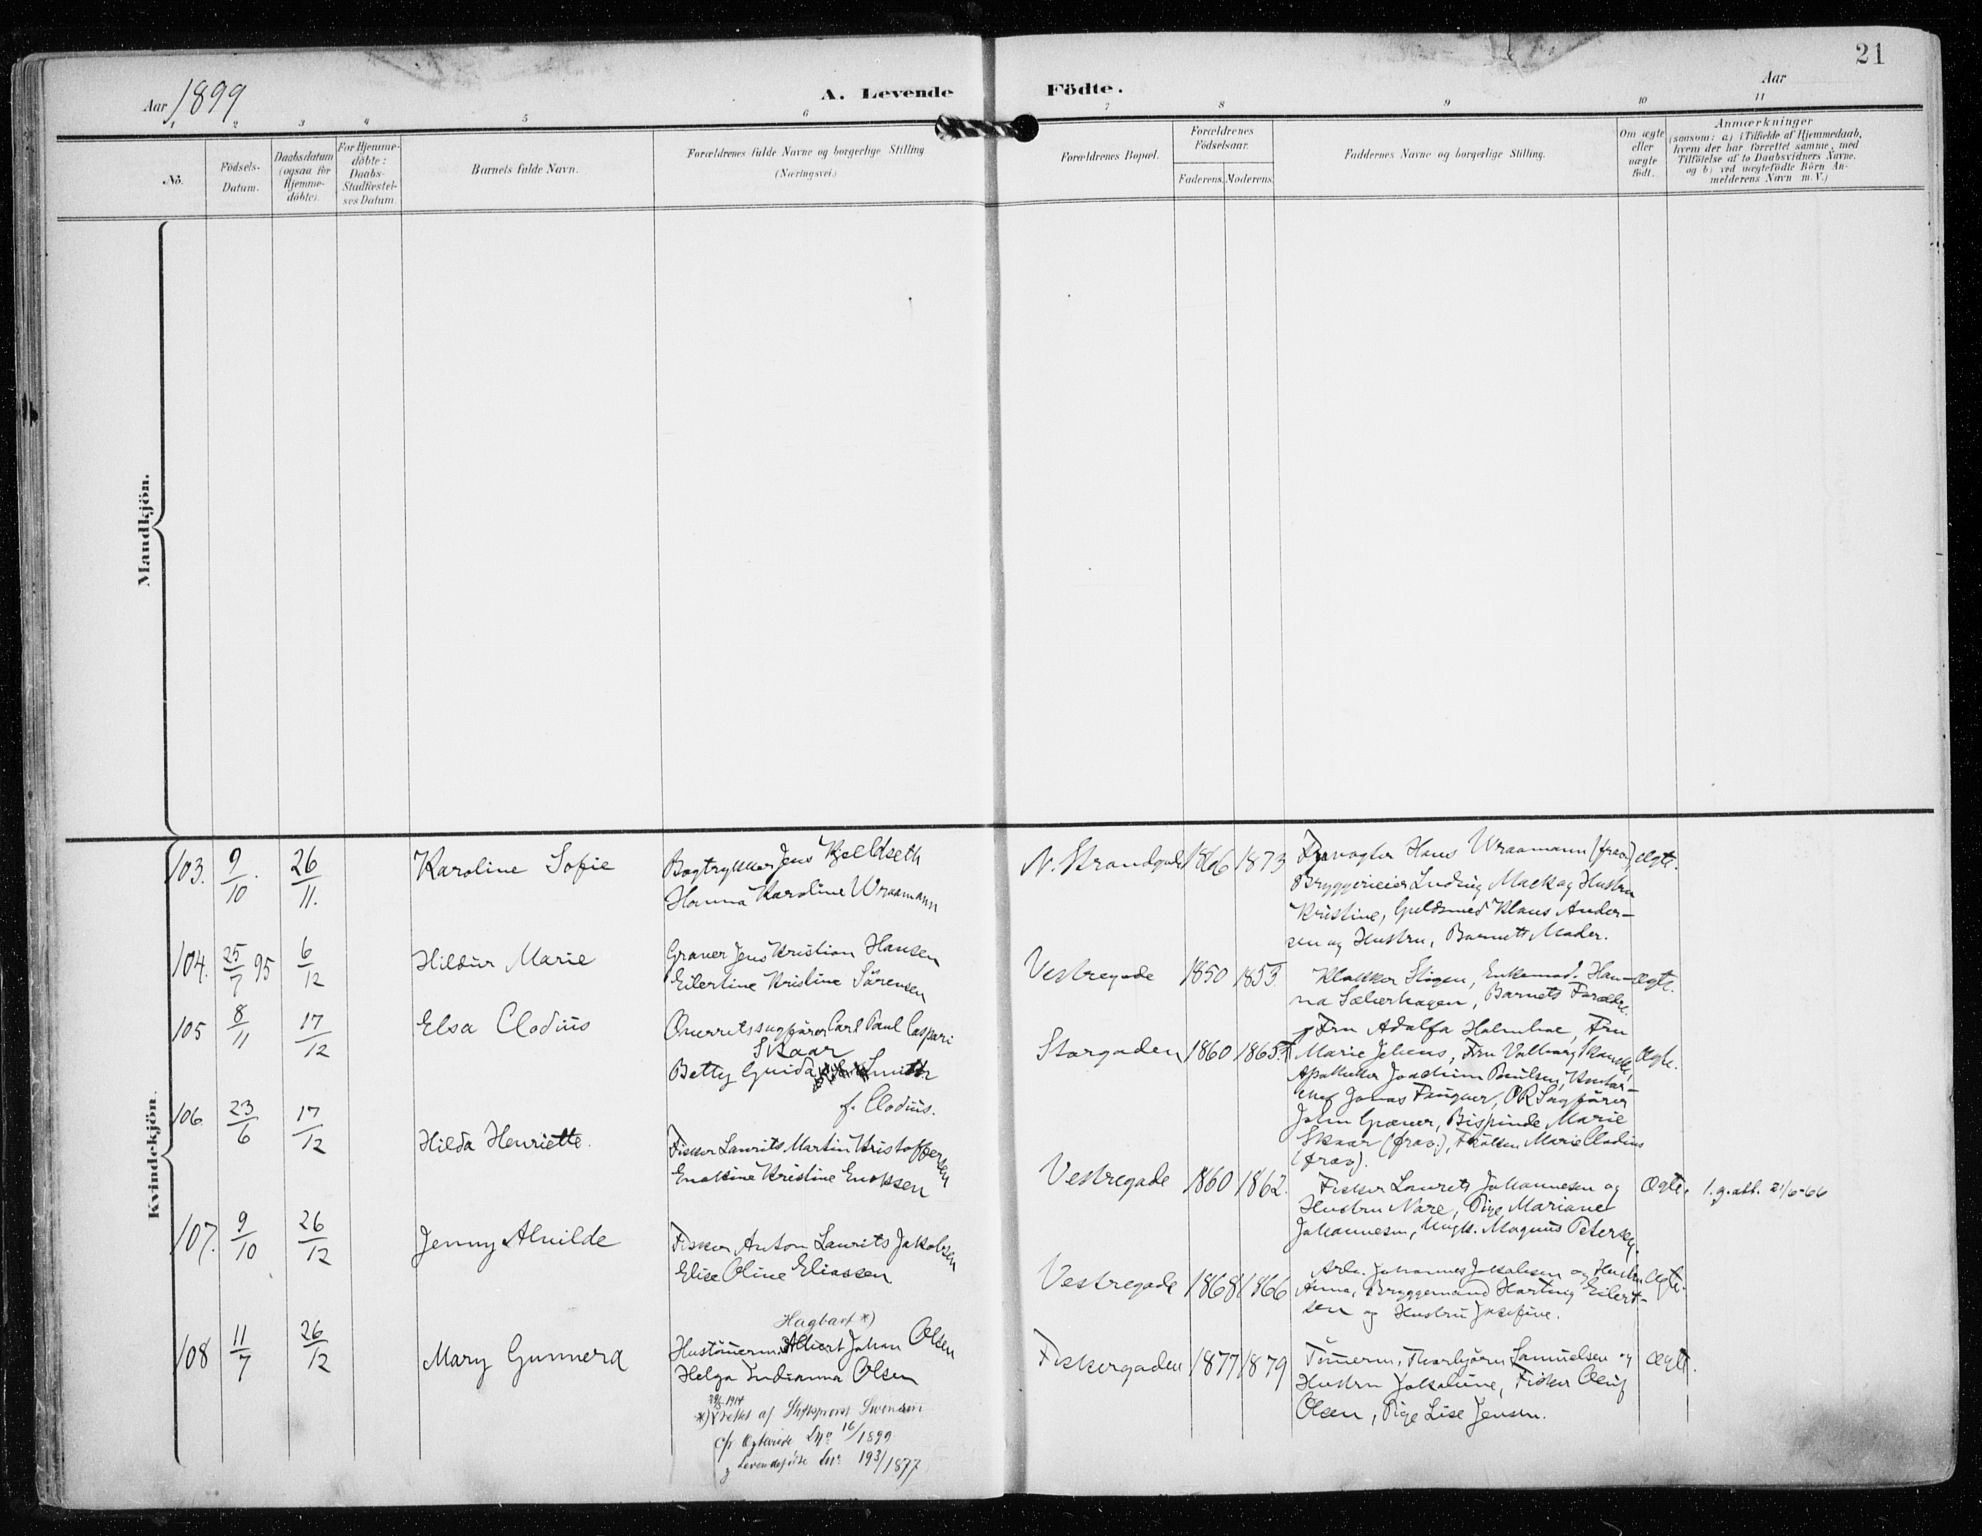 21
Aar 1899
A. Levende Födte.
Aar
1 2 3 4 5 6 7 8 9 10 11
No.
Födsels-
Datum.
Daabsdatum
(ogsaa for
Hjemme-
döbte).
For Hjemme-
döbte:
Daabs-
Stadfæstel-
ses Datum.
Barnets fulde Navn.
Forældrenes fulde Navne og borgerlige Stilling
(Næringsvei.)
Forældrenes Bopæl.
Forældrenes
Födselsaar.
Faderens.
Moderens.
Faddernes Navne og borgerlige Stilling.
Om ægte
eller
uægte
födt.
Anmærkninger
(saasom: a) i Tilfælde af Hjemmedaab,
hvem der har forrettet samme, med
Tilföielse af to Daabsvidners Navne.
og b) ved uægtefödte Börn An-
melderens Navn m. V.)
Mandkjön.
Kvindekjön.
103. 9/10. 26/11. Karoline Sofie
Bogtrykker Jens Kjeldseth
Hanna Karoline Wraamann
N. Strandgade 1866 1873
Fyrvogter Hans Wraamann (frav.),
Bryggerieier Ludvig Mack og Hustru
Kristine, Guldsmed Klaus Ander-
sen og Hustru, Barnets Moder.
Ægte.
104. 25/7 95 6/12 Hildur Marie
Graver Jens Kristian Hansen
Eilertine Kristine Sörensen
Vestregade 1850 1853.
Klokker Stögen, Enkemad. Han-
na Sæterhagen, Barnets Foræld.
Ægte.
105 8/11 17/12 Elsa Clodius
Overretssagförer Carl Paul Caspari
Skaar
Betty Guida Smith
f. Clodius.
Storgaden 1860 1865
Fru Adolfa Holmboe, Fru
Marie Jebens, Fru Valborg Skancke,
Apotheker Joachim Poulsen, Kontor-
chef Jonas Fougner, ORSagförer
John Græner, Bispinde Marie
Skaar (frav.), Fröken Marie Clodius
(frav).
Ægte.
106 23/6 17/12 Hilda Henriette.
Fisker Laurits Martin Kristoffersen
Enokine Kristine Enoksen
Vestregade 1860 1862.
Fisker Laurits Johannesen og
Hustru Nare, Pige Mariane
Johannesen, Ungk. Magnus Petersen.
Ægte.
1. g. att. 21/6-66
107. 9/10 26/12 Jenny Alvilde
Fisker Anton Laurits Jakobsen
Elise Oline Eliassen
Vestregade 1868 1866
Arb. Johannes Jakobsen og Hustru
Anna, Bryggemand Hartvig Eilert-
sen og Hustru Josefine.
Ægte.
108 11/7 26/12 Mary Gunnera
Hagbart *)
Hustömerm. Albert Johan Olsen
Helga Indianna Olsen
Fiskergaden 1877 1879
Tömerm. Thorbjörn Samuelsen og
Hustru Jakobine, Fisker Oluf
Olsen, Pige Lise Jensen.
Ægte.
1914
*) rettet af Stiftsprovst Svendsen
cfr Ægteviede No 16/1899
og Levendefödte No 193/1877